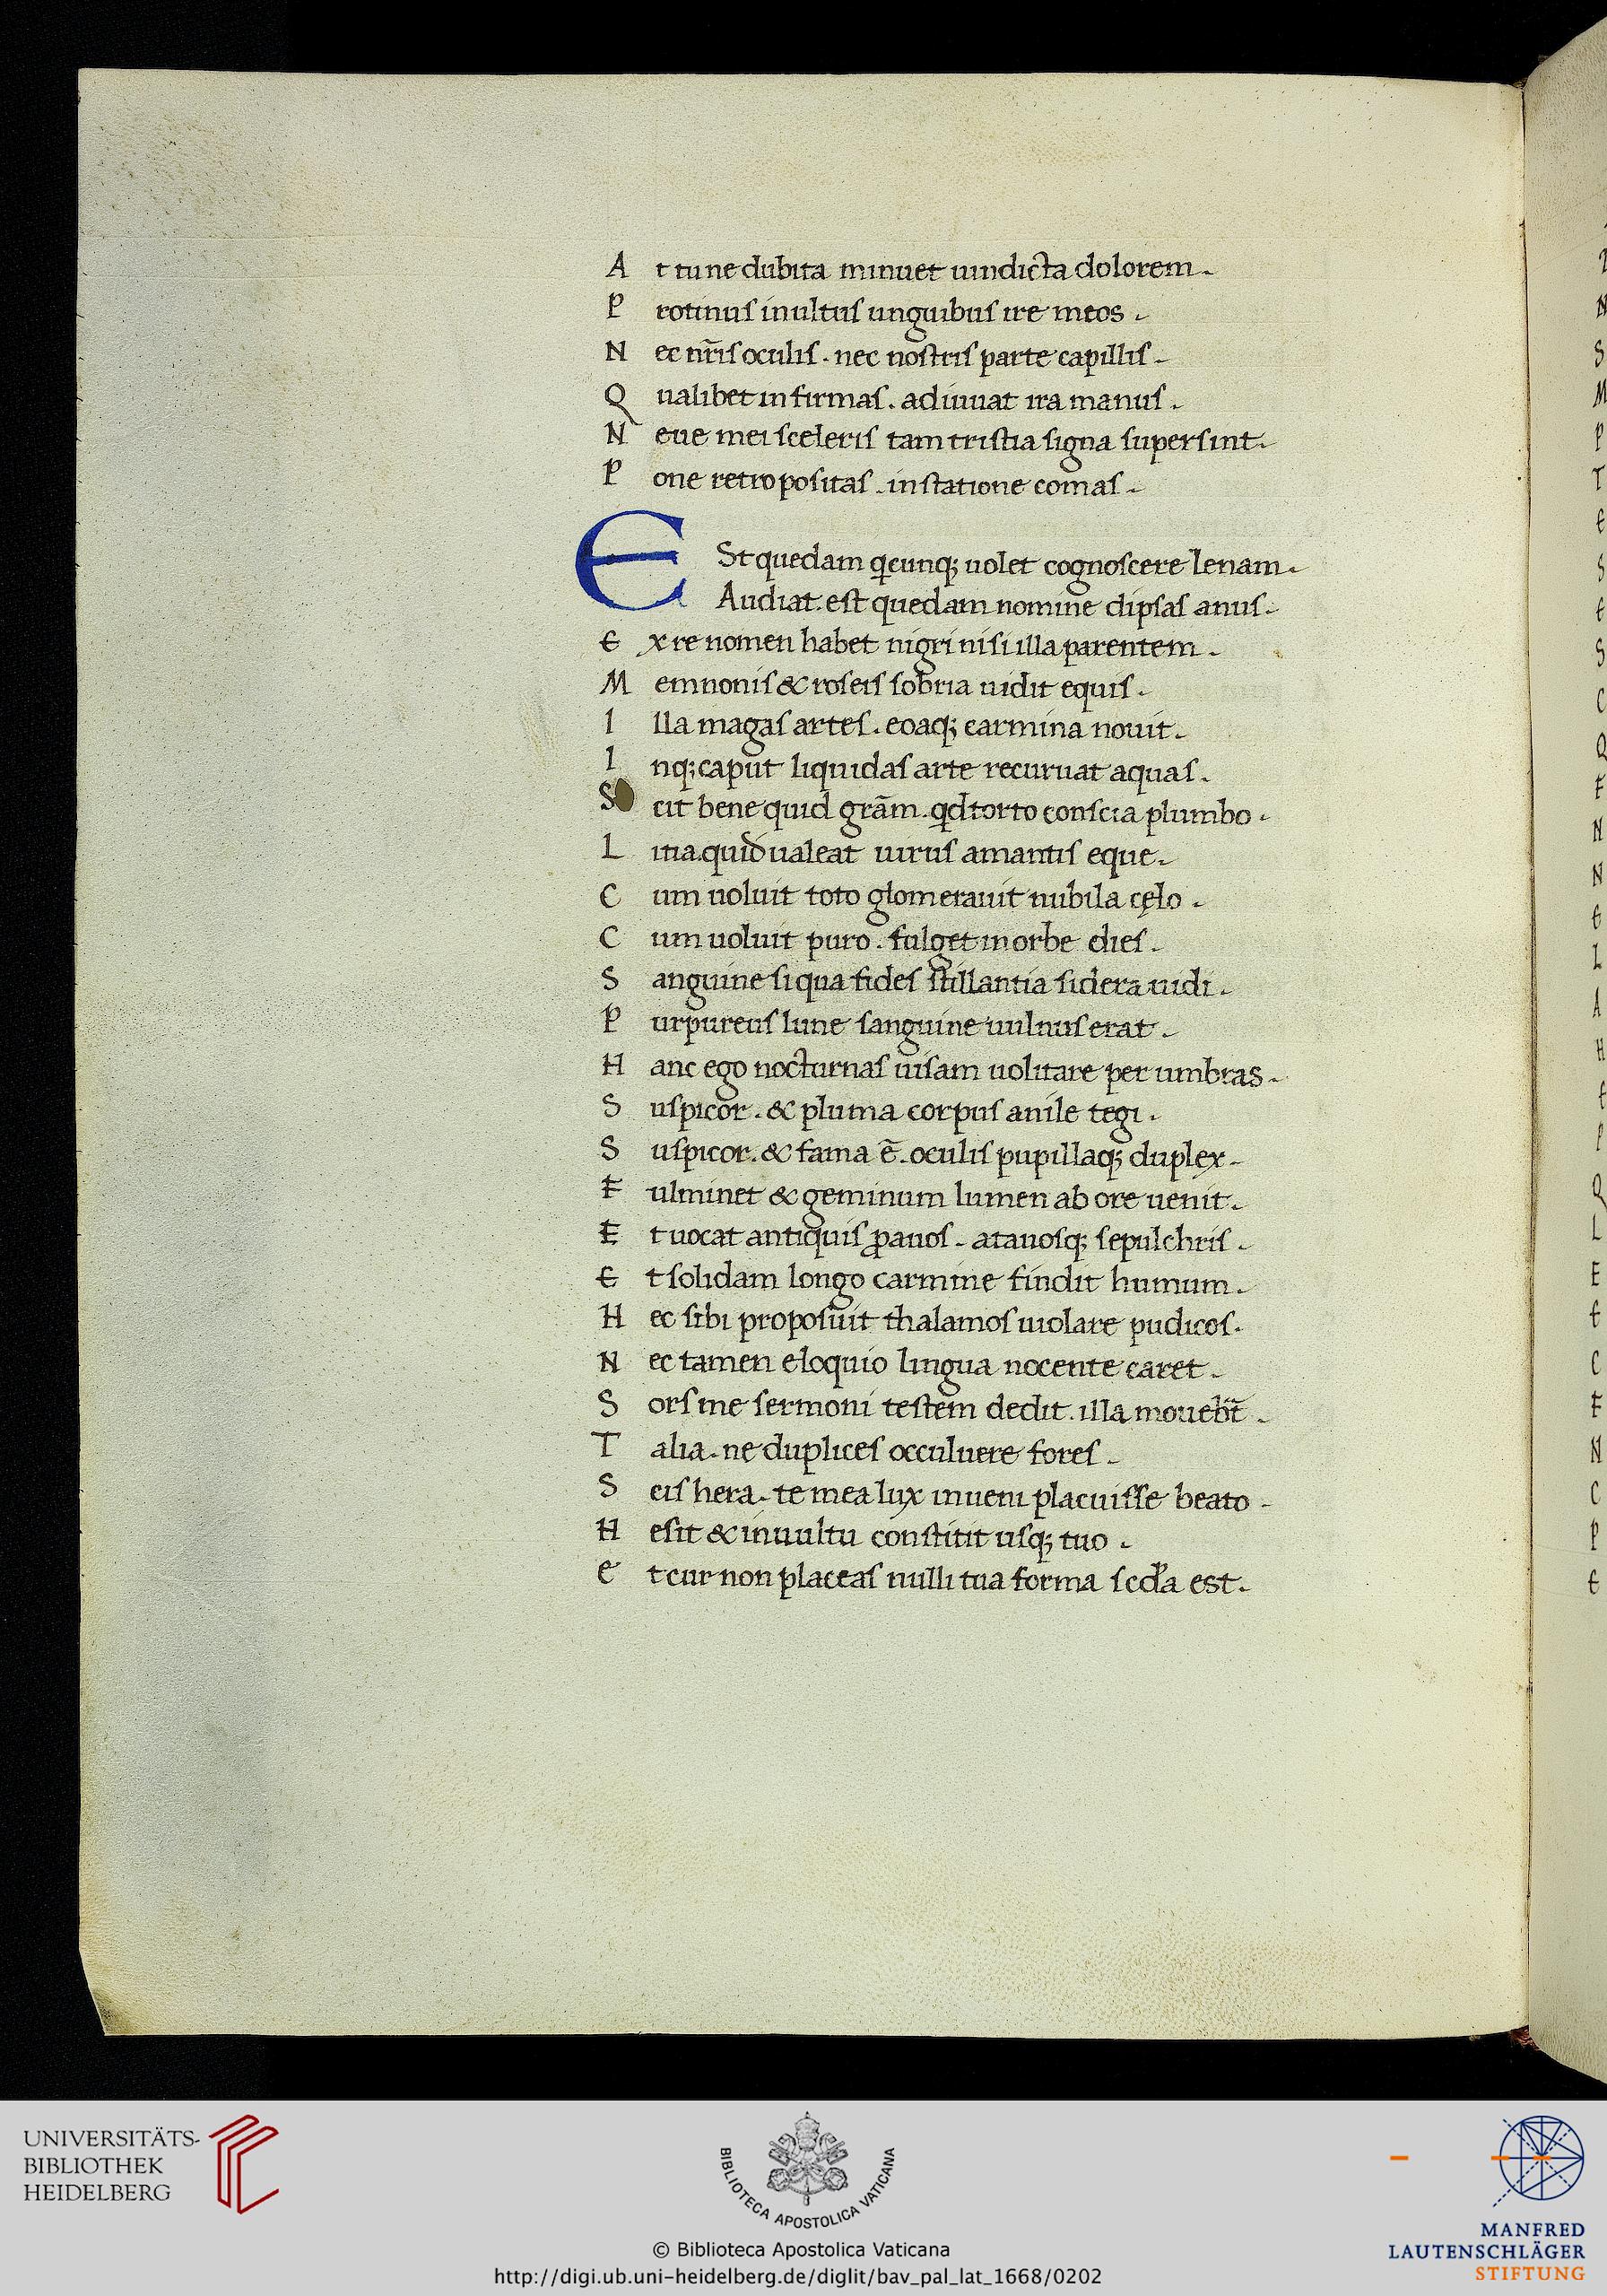 A t tu ne dubita minuet uindicta dolorem.
P rotinuſ in ultuſ unguibuſ ire meoſ.
N ec nr̄iſ oculiſ. nec noſtriſ parte capilliſ.
Q ualibet infirmaſ. adiuuat ira manuſ.
N eue mei sceleriſ tam triſtia ſigna ſuperſint.
P one retro poſitaſ. in ſtatione comaſ.
E St quedam q̇cunq; uolet cognoſcere lenam.
Audiat. eſt quedam nomine dipſaſ anuſ.
E x re nomen habet nigri niſi illa parentem.
M emnoniſ & roſeiſ ſobria uidit equiſ.
I lla magaſ arteſ. eoaq; carmina nouit.
I nq; caput liquidaſ arte recuruat aquaſ.
S cit bene quid grām. qd torto conſcia plumbo.
L itia. quid ualeat uiruſ amantiſ eque.
C um uoluit toto glomerauit nubila cęlo.
C um uoluit puro. fulget in orbe dieſ.
S anguine ſi qua fideſ ſtillantia ſidera uidi.
P urpureuſ lune ſanguine uulnuſ erat.
H anc ego nocturnaſ uiſam uolitare per umbras.
S uſpicor. & pluma corpuſ anile tegi.
S uſpicor. & fama ē. oculiſ pupillaq; duplex.
F ulminet & geminum lumen ab ore uenit.
E t uocat antiquiſ ꝓauoſ. atauoſq; ſepulchriſ.
E t ſolidam longo carmine findit humum.
H ec ſibi propoſuit thalamoſ uiolare pudicoſ.
N ec tamen eloquio lingua nocente caret.
S orſ me ſermoni teſtem dedit. illa moueb̄t.
T alia. ne dupliceſ occuluere foreſ.
S ciſ hera. te mea lux inueni placuiſſe beato.
H eſit & in uultu conſtitit uſq; tuo.
E t cur non placeaſ nulli tua forma ſcd̄a est.
UNIVERSITÄTS-
BIBLIOTHEK
HEIDELBERG
BIBLIOTECA APOSTOLICA VATICANA
© Biblioteca Apostolica Vaticana
http://digi.ub.uni-heidelberg.de/diglit/bav_pal_lat_1668/0202
MANFRED
LAUTENSCHLÄGER
STIFTUNG